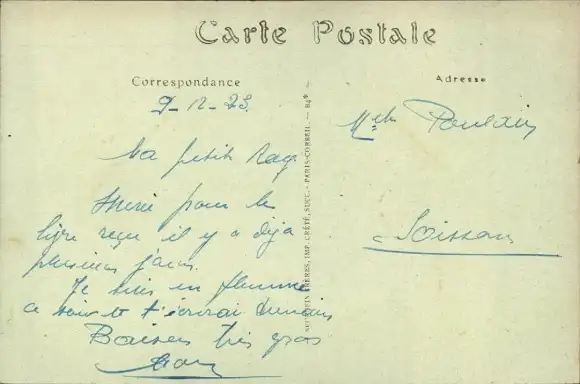 Carte Postale
Correspondance
Adresse
9-12-23.
Ma petite
Merci pour la
ligne reçue il y a déjà
plusieurs jours.
Je suis en flemme
ce soir et t'écrirai demain
Baisers très gros
Melle Poulain
Soissons
FRÈRES, IMP. CRÉTÉ, SUCC. - PARIS-CORBEIL. - 84